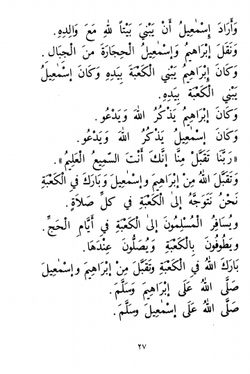 وَأَرَادَ إِسْمَعِيلُ أَنْ يَبْنِيَ بَيْتاً لِلّهِ مَعَ وَالِدِهِ.
وَنَقَلَ إِبْرَاهِيمُ وَإِسْمَعِيلُ الْحِجَارَةَ مِنَ الْجِبَالِ.
وَكَانَ إِبْرَاهِيمُ يَبْنِي الْكَعْبَةَ بِيَدِهِ وَكَانَ إِسْمَعِيلُ
يَبْنِي الْكَعْبَةَ بِيَدِهِ.
وَكَانَ إِبْرَاهِيمُ يَذْكُرُ اللهَ وَيَدْعُو.
وَكَانَ إِسْمَعِيلُ يَذْكُرُ اللهَ وَيَدْعُو.
«رَبَّنَا تَقَبَّلْ مِنَّا إِنَّكَ أَنْتَ السَّمِيعُ الْعَلِيمُ»
وَتَقَبَّلَ اللهُ مِنْ إِبْرَاهِيمَ وَإِسْمَعِيلَ وَبَارَكَ فِي الْكَعْبَةِ
نَحْنُ نَتَوَجَّهُ إِلَى الْكَعْبَةِ فِي كُلِّ صَلاَةٍ.
وَيُسَافِرُ الْمُسْلِمُونَ إِلَى الْكَعْبَةِ فِي أَيَّامِ الْحَجِّ.
وَيَطُوفُونَ بِالْكَعْبَةِ وَيُصَلُّونَ عِنْدَهَا.
بَارَكَ اللهُ فِي الْكَعْبَةِ وَتَقَبَّلَ مِنْ إِبْرَاهِيمَ وَإِسْمَعِيلَ
صَلَّى اللهُ عَلَى إِبْرَاهِيمَ وَسَلَّمَ.
صَلَّى اللهُ عَلَى إِسْمَعِيلَ وَسَلَّمَ.
٢٧